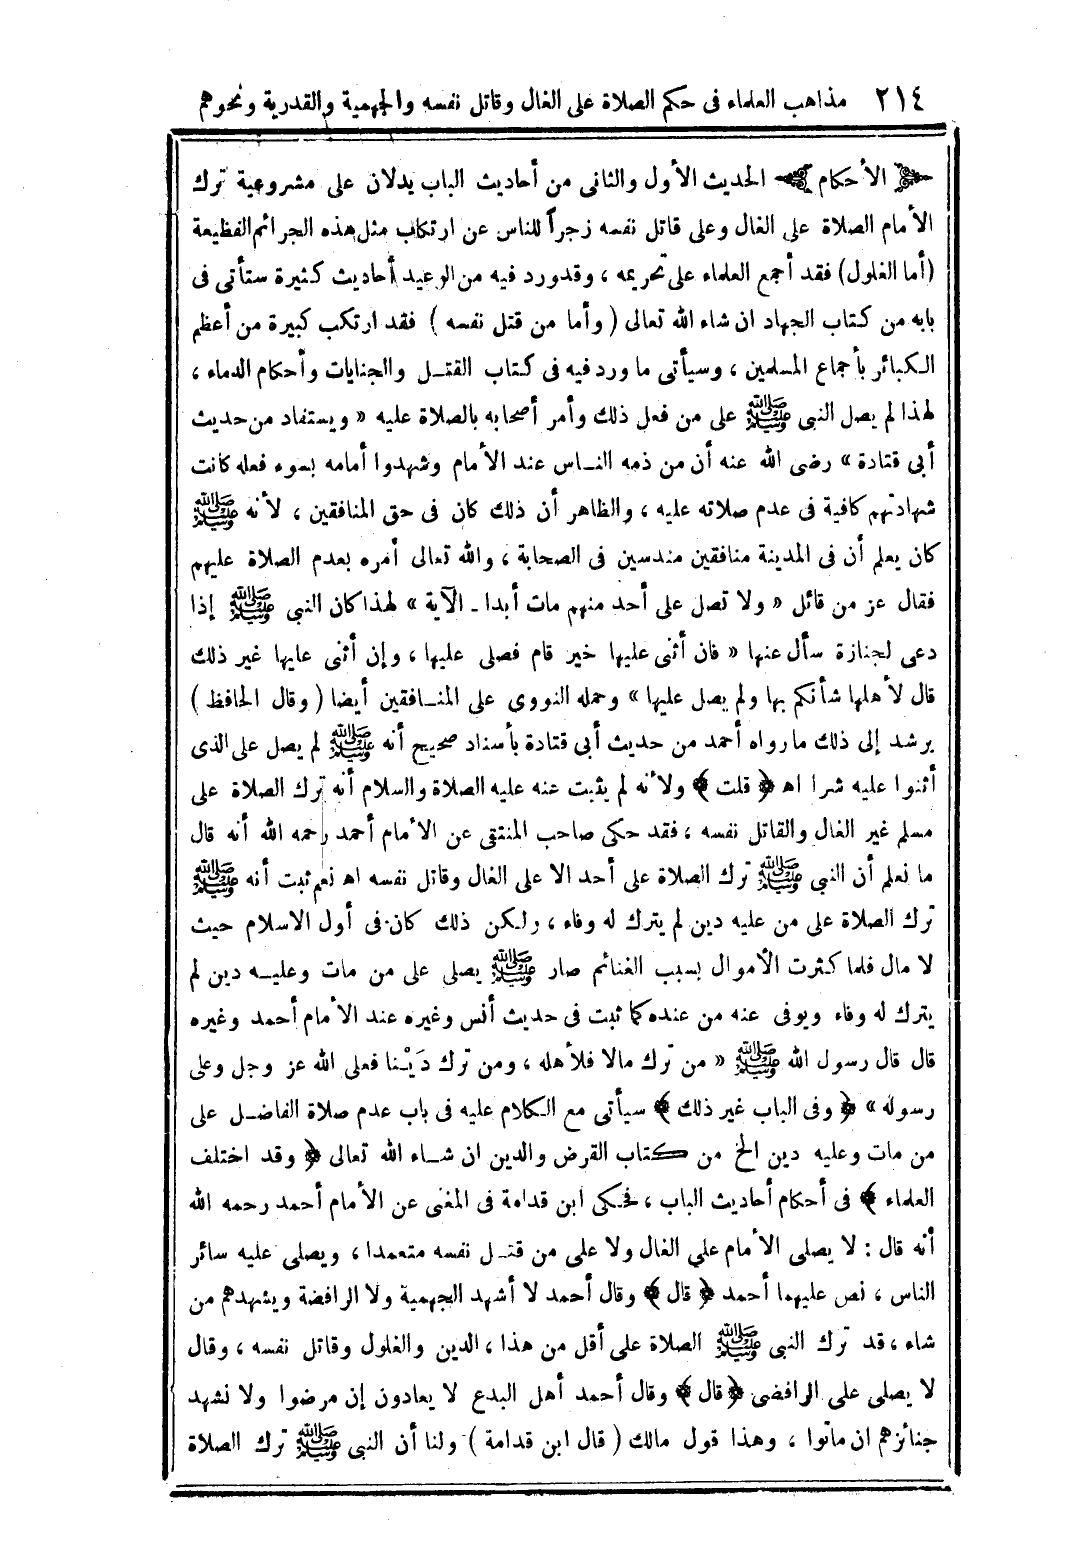 ٢١٤ مذاهب العلماء فى حكم الصلاة على الغال وقاتل نفسه والجهمية والقدرية ونحوهم
﴿ الأحكام ﴾ الحديث الأول والثانى من أحاديث الباب يدلان على مشروعية ترك
الأمام الصلاة على الغال وعلى قاتل نفسه زجراً للناس عن ارتكاب مثل هذه الجرائم الفظيعة
(أما الغلول) فقد أجمع العلماء على تحريمه ، وقد ورد فيه من الوعيد أحاديث كثيرة ستأتى فى
بابه من كتاب الجهاد ان شاء الله تعالى ( وأما من قتل نفسه ) فقد ارتكب كبيرة من أعظم
الكبائر بأجماع المسلمين ، وسيأتى ما ورد فيه فى كتاب القتل والجنايات وأحكام الدماء ،
لهذا لم يصل النبى ﷺ على من فعل ذلك وأمر أصحابه بالصلاة عليه « ويستفاد من حديث
أبى قتادة » رضى الله عنه أن من ذمه النـاس عند الأمام وشهدوا أمامه بسوء فعله كانت
شهادتهم كافية فى عدم صلاته عليه ، والظاهر أن ذلك كان فى حق المنافقين ، لأنه ﷺ
كان يعلم أن فى المدينة منافقين مندسين فى الصحابة ، والله تعالى أمره بعدم الصلاة عليهم
فقال عز من قائل « ولا تصل على أحد منهم مات أبدا ـ الآية » لهذا كان النبى ﷺ إذا
دعى لجنازة سأل عنها « فان أثنى عليها خير قام فصلى عليها ، وإن أثنى عليها غير ذلك
قال لأهلها شأنكم بها ولم يصل عليها » وحمله النووى على المنـافقين أيضا ( وقال الحافظ )
يرشد إلى ذلك ما رواه أحمد من حديث أبى قتادة بأسناد صحيح أنه ﷺ لم يصل على الذى
أثنوا عليه شرا اه ﴿ قلت ﴾ ولأنه لم يثبت عنه عليه الصلاة والسلام أنه ترك الصلاة على
مسلم غير الغال والقاتل نفسه ، فقد حكى صاحب المنتقى عن الأمام أحمد رحمه الله أنه قال
ما نعلم أن النبى ﷺ ترك الصلاة على أحد الا على الغال وقاتل نفسه اه نعم ثبت أنه ﷺ
ترك الصلاة على من عليه دين لم يترك له وفاء ، ولكن ذلك كان فى أول الاسلام حيث
لا مال فلما كثرت الأموال بسبب الغنائم صار ﷺ يصلى على من مات وعليـه دين لم
يترك له وفاء ويوفى عنه من عنده كما ثبت فى حديث أنس وغيره عند الأمام أحمد وغيره
قال قال رسول الله ﷺ « من ترك مالا فلأهله ، ومن ترك دَيْنا فعلى الله عز وجل وعلى
رسوله » ﴿ وفى الباب غير ذلك ﴾ سيأتى مع الكلام عليه فى باب عدم صلاة الفاضـل على
من مات وعليه دين الخ من كتاب القرض والدين ان شـاء الله تعالى ﴿ وقد اختلف
العلماء ﴾ فى أحكام أحاديث الباب ، فحكى ابن قدامة فى المغنى عن الأمام أحمد رحمه الله
أنه قال : لا يصلى الأمام على الغال ولا على من قتـل نفسه متعمدا ، ويصلى عليه سائر
الناس ، نص عليهما أحمد ﴿ قال ﴾ وقال أحمد لا أشهد الجهمية ولا الرافضة ويشهدهم من
شاء ، قد ترك النبى ﷺ الصلاة على أقل من هذا ، الدين والغلول وقاتل نفسه ، وقال
لا يصلى على الرافضى ﴿ قال ﴾ وقال أحمد أهل البدع لا يعادون إن مرضوا ولا نشهد
جنائزهم ان ماتوا ، وهذا قول مالك ( قال ابن قدامة ) ولنا أن النبى ﷺ ترك الصلاة